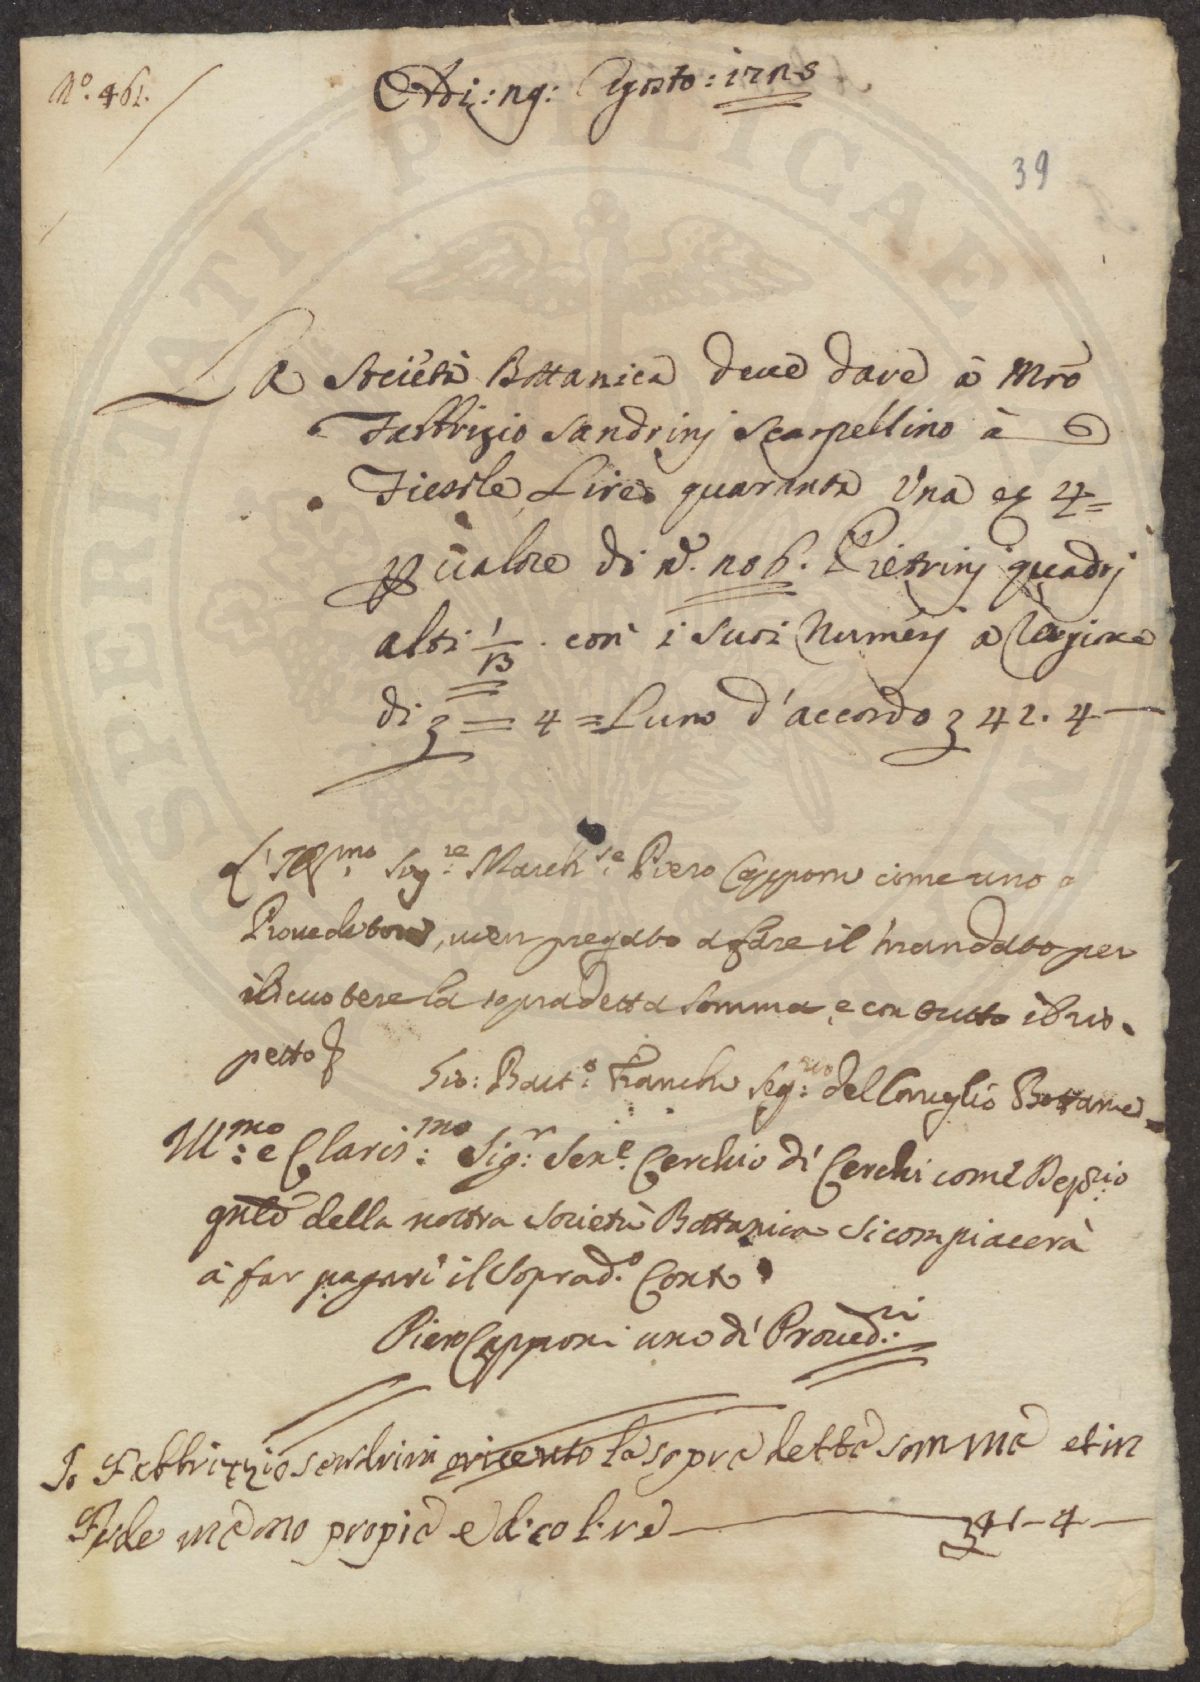 N.º 461.
Adi: 29: Agosto: 1725
39
La Società Bottanica deve dare à Mro
Fabbrizio Sandrinj Scarpellino à
Fiesole Lire quaranta Una e 4
p valore di nº. 206. Pietrinj quadrj
alti 1/3 con i suoi Numerj a ragione
di 3 = 4 = L'uno d'accordo 3 41. 4
L'Ill.mo Sig.re March.se Piero Capponi come uno
Provveditore, vien pregato a fare il mandato per
riscuotere la sopradetta somma e con tutto il ris-
petto
Gio: Batt.a Franchi Seg.rio del Consiglio Bottanico
Ill.mo e Claris.mo Sig.r Sen.e Cerchio di Cerchi come Depos.rio
della nostra società Bottanica si compiacerà
à far pagare il soprad.º Conto
Piero Capponi uno di Proved.ri
Io Fabbrizzio sandrini o riceuto la sopra detta somma et in
Fede mano propia e dico lire 3 41-4
SPERITATI PUBLICAE